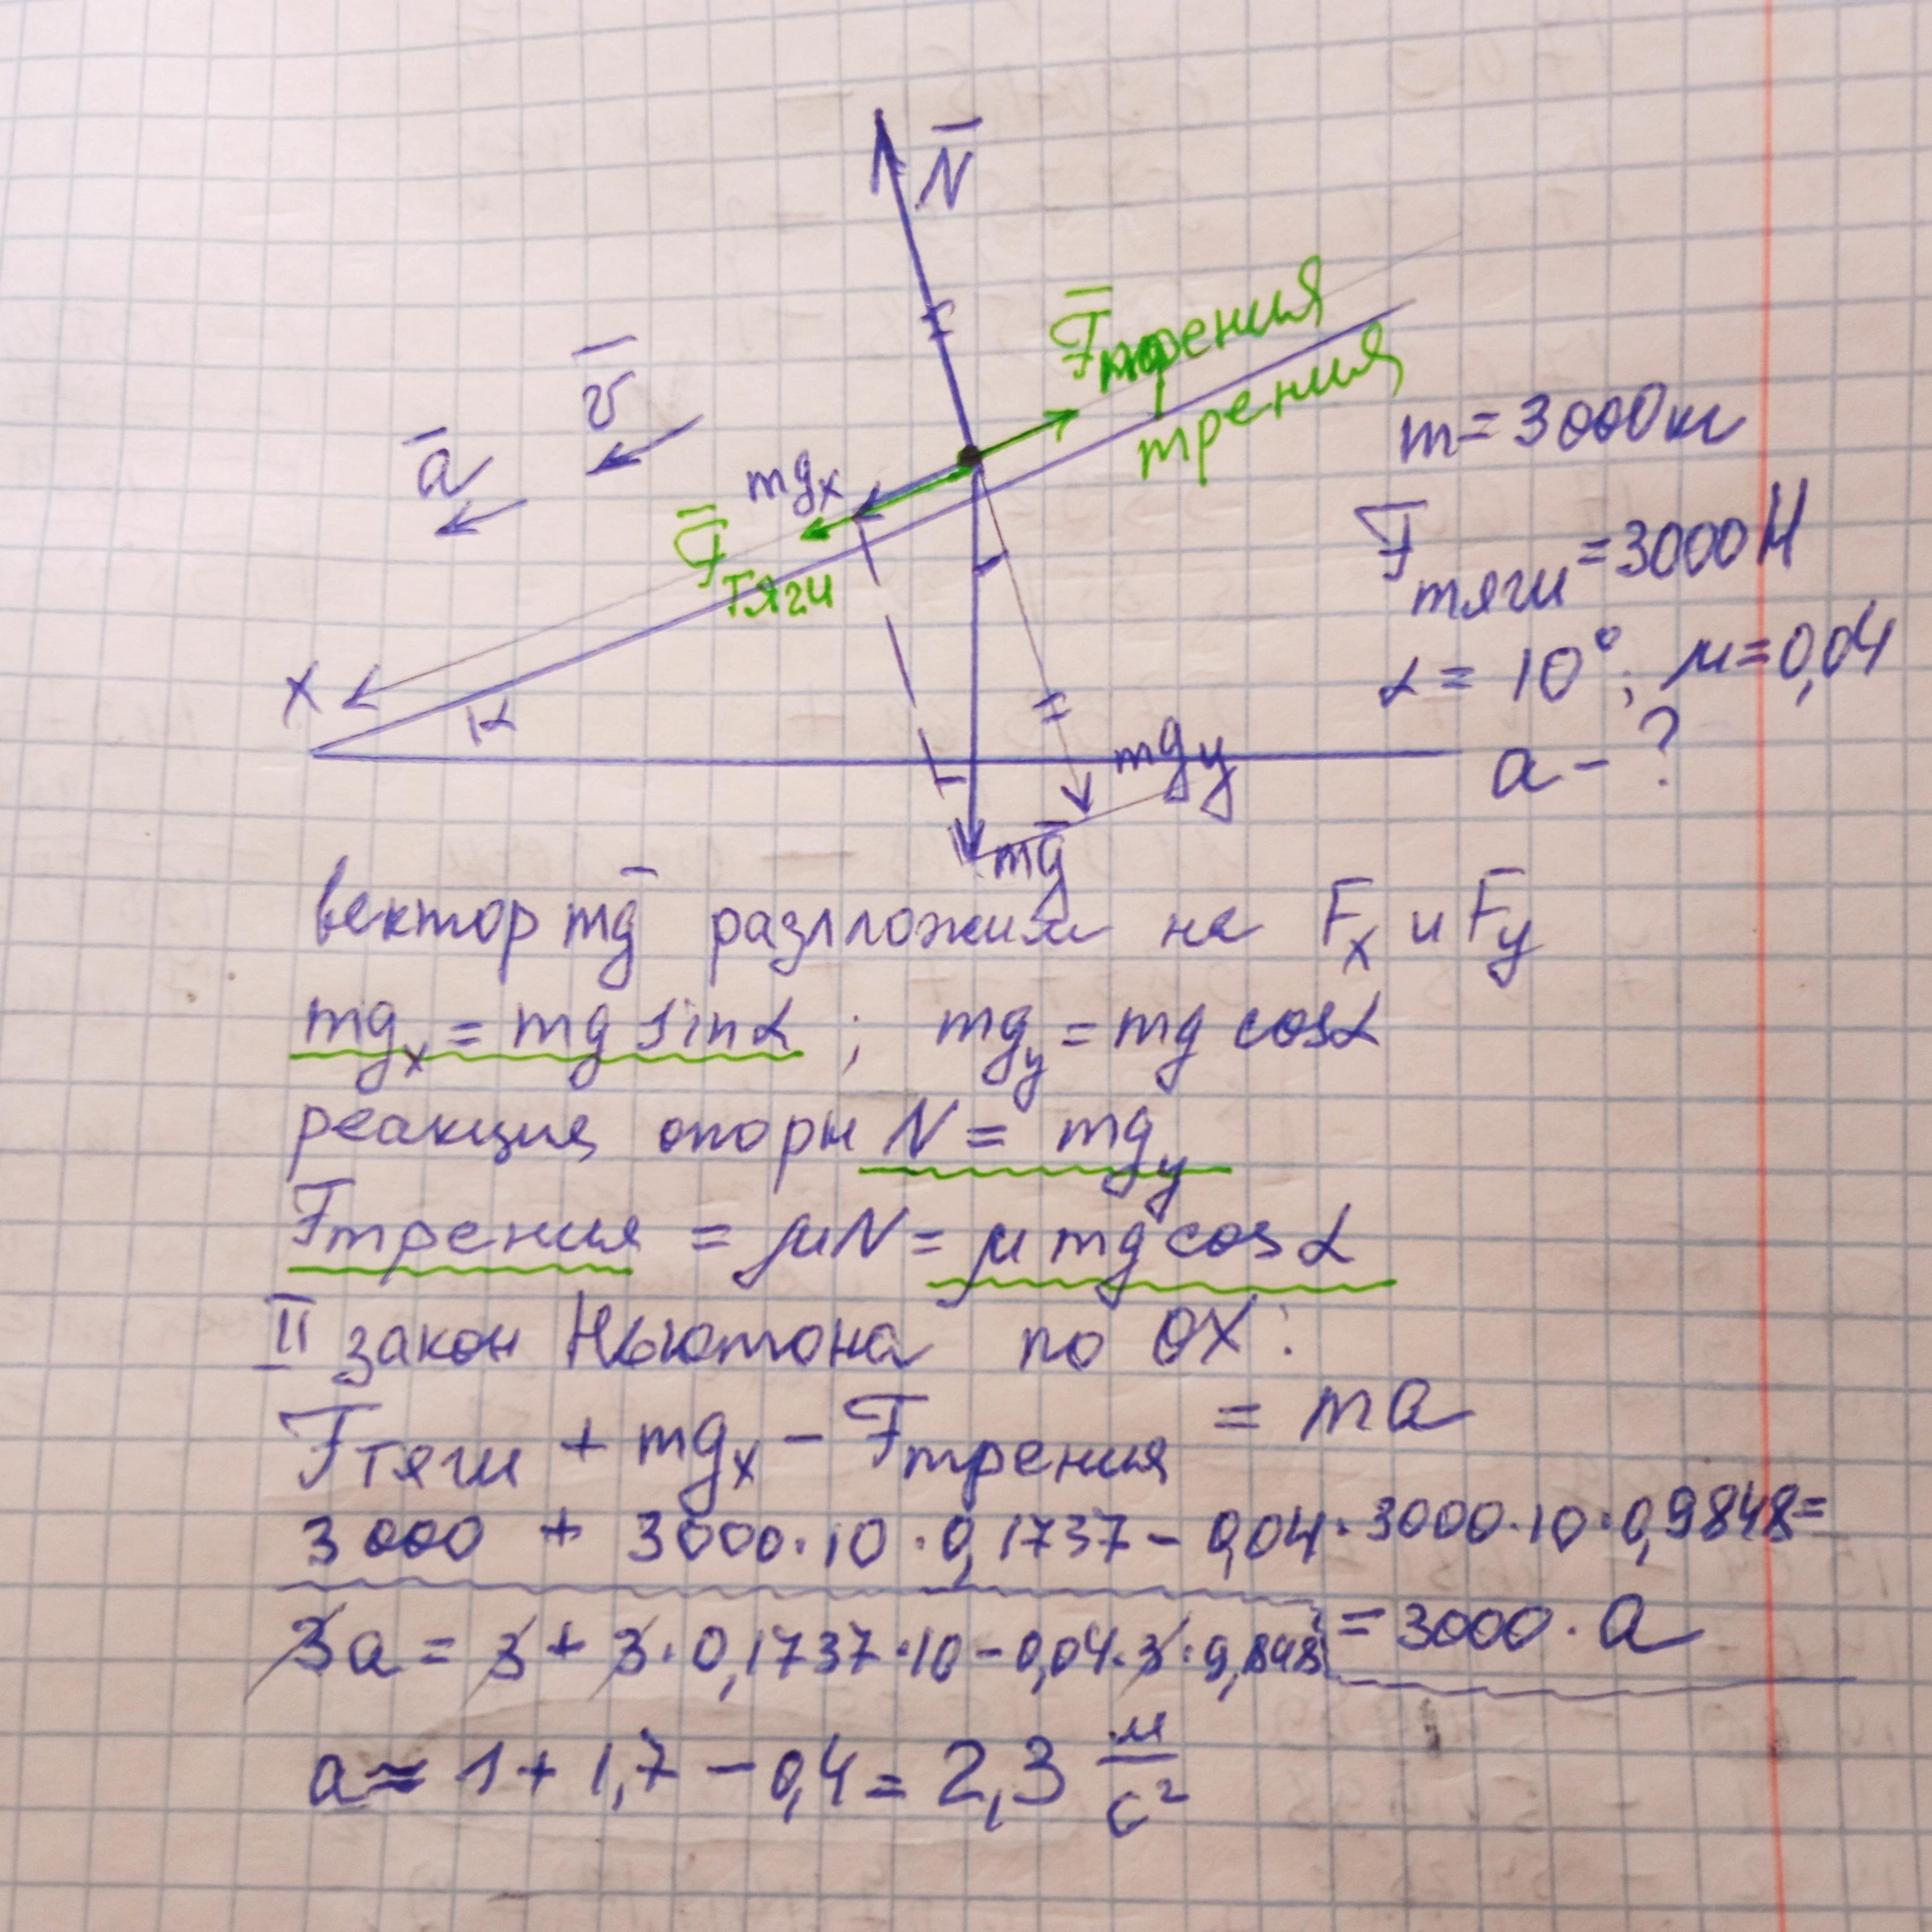 N̅
F̅трения
трения
v̅
a̅
mgₓ
F̅тяги
X
α
mg_y
mg̅
m = 3000 кг
Fтяги = 3000 Н
α = 10°; μ = 0,04
a - ?
вектор mg̅ разлложим на F̅ₓ и F̅_y
mgₓ = mg sinα ; mg_y = mg cosα
реакция опоры N = mg_y
Fтрения = μN = μ mg cosα
II закон Ньютона по OX:
Fтяги + mgₓ - Fтрения = ma
3000 + 3000·10·0,1737 - 0,04·3000·10·0,9848 =
= 3000·a
3a = 3 + 3·0,1737·10 - 0,04·3·9,848
a ≈ 1 + 1,7 - 0,4 = 2,3 м/с²